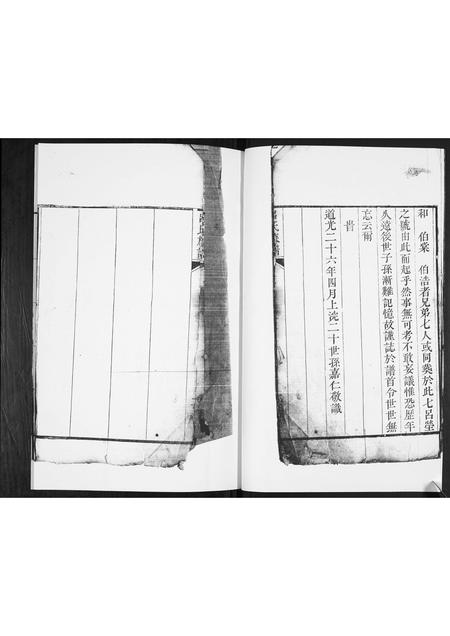 和 伯棠 伯浩者兄弟七人或同葬於此七呂塋
之號由此而起乎然事無可考不敢妄議惟恐歷年
久遠後世子孫漸難記憶故謹誌於譜首令世世無
忘云爾
旹
道光二十六年四月上浣二十世孫嘉仁敬識
呂氏族譜